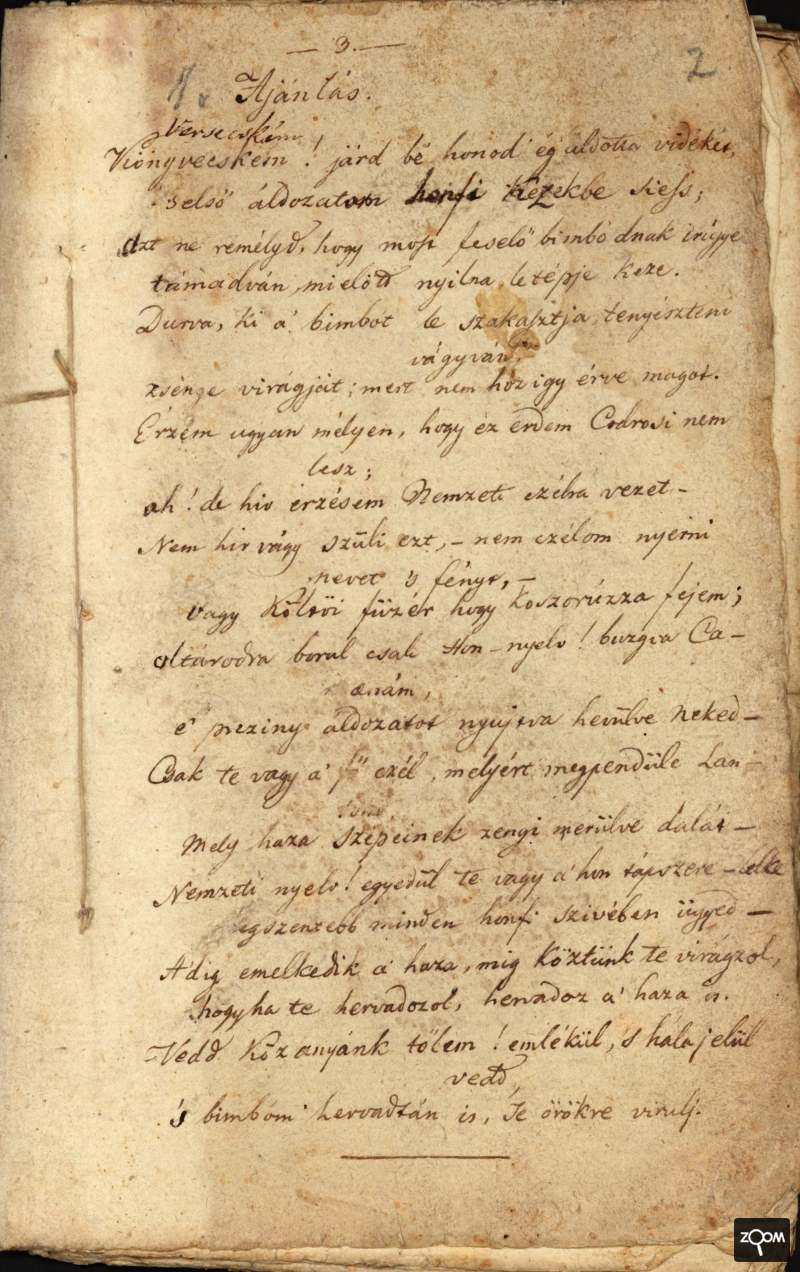 — 3. —
2
Ajánlás.
Versecském
Könyvecském! járd bé honod' ég áldotta vidékit,
's első áldozatom honfi kezekbe siess;
Azt ne reméllyd, hogy most feselő bimbódnak irígye
támadván, mielőtt nyílna, letépje keze.
Durva, ki a' bimbot le szakasztja, tenyészteni
vágyván
zsenge virágját; mert nem hoz igy érve magot.
Érzem ugyan mélyen, hogy ez érdem Codrosi nem
lesz;
ah! de hiv érzésem Nemzeti czélra vezet –
Nem hir vágy szüli ezt, – nem czélom nyerni
nevet 's fényt, –
vagy Költői füzér hogy koszorúzza fejem;
oltárodra borul csak Hon-nyelv! buzgva Ca-
enám,
e' áldozatot nyujtva hevülve neked –
Csak te vagy a' fő czél, melyért megpendüle Lan-
Mely haza szépeinek zengi merülve dalát –
Nemzeti nyelv! egyedül te vagy a' hon tápszere – lelke
egszentebb minden honfi szivében ügyed –
Adig emelkedik a' haza, mig köztünk te virágzol,
hogyha te hervadozol, hervadoz a' haza is.
Vedd Köz anyánk tőlem! emlékül, 's hála jelül
vedd,
's bimbóm hervadtán is, Te örökre virulj.
ZOOM